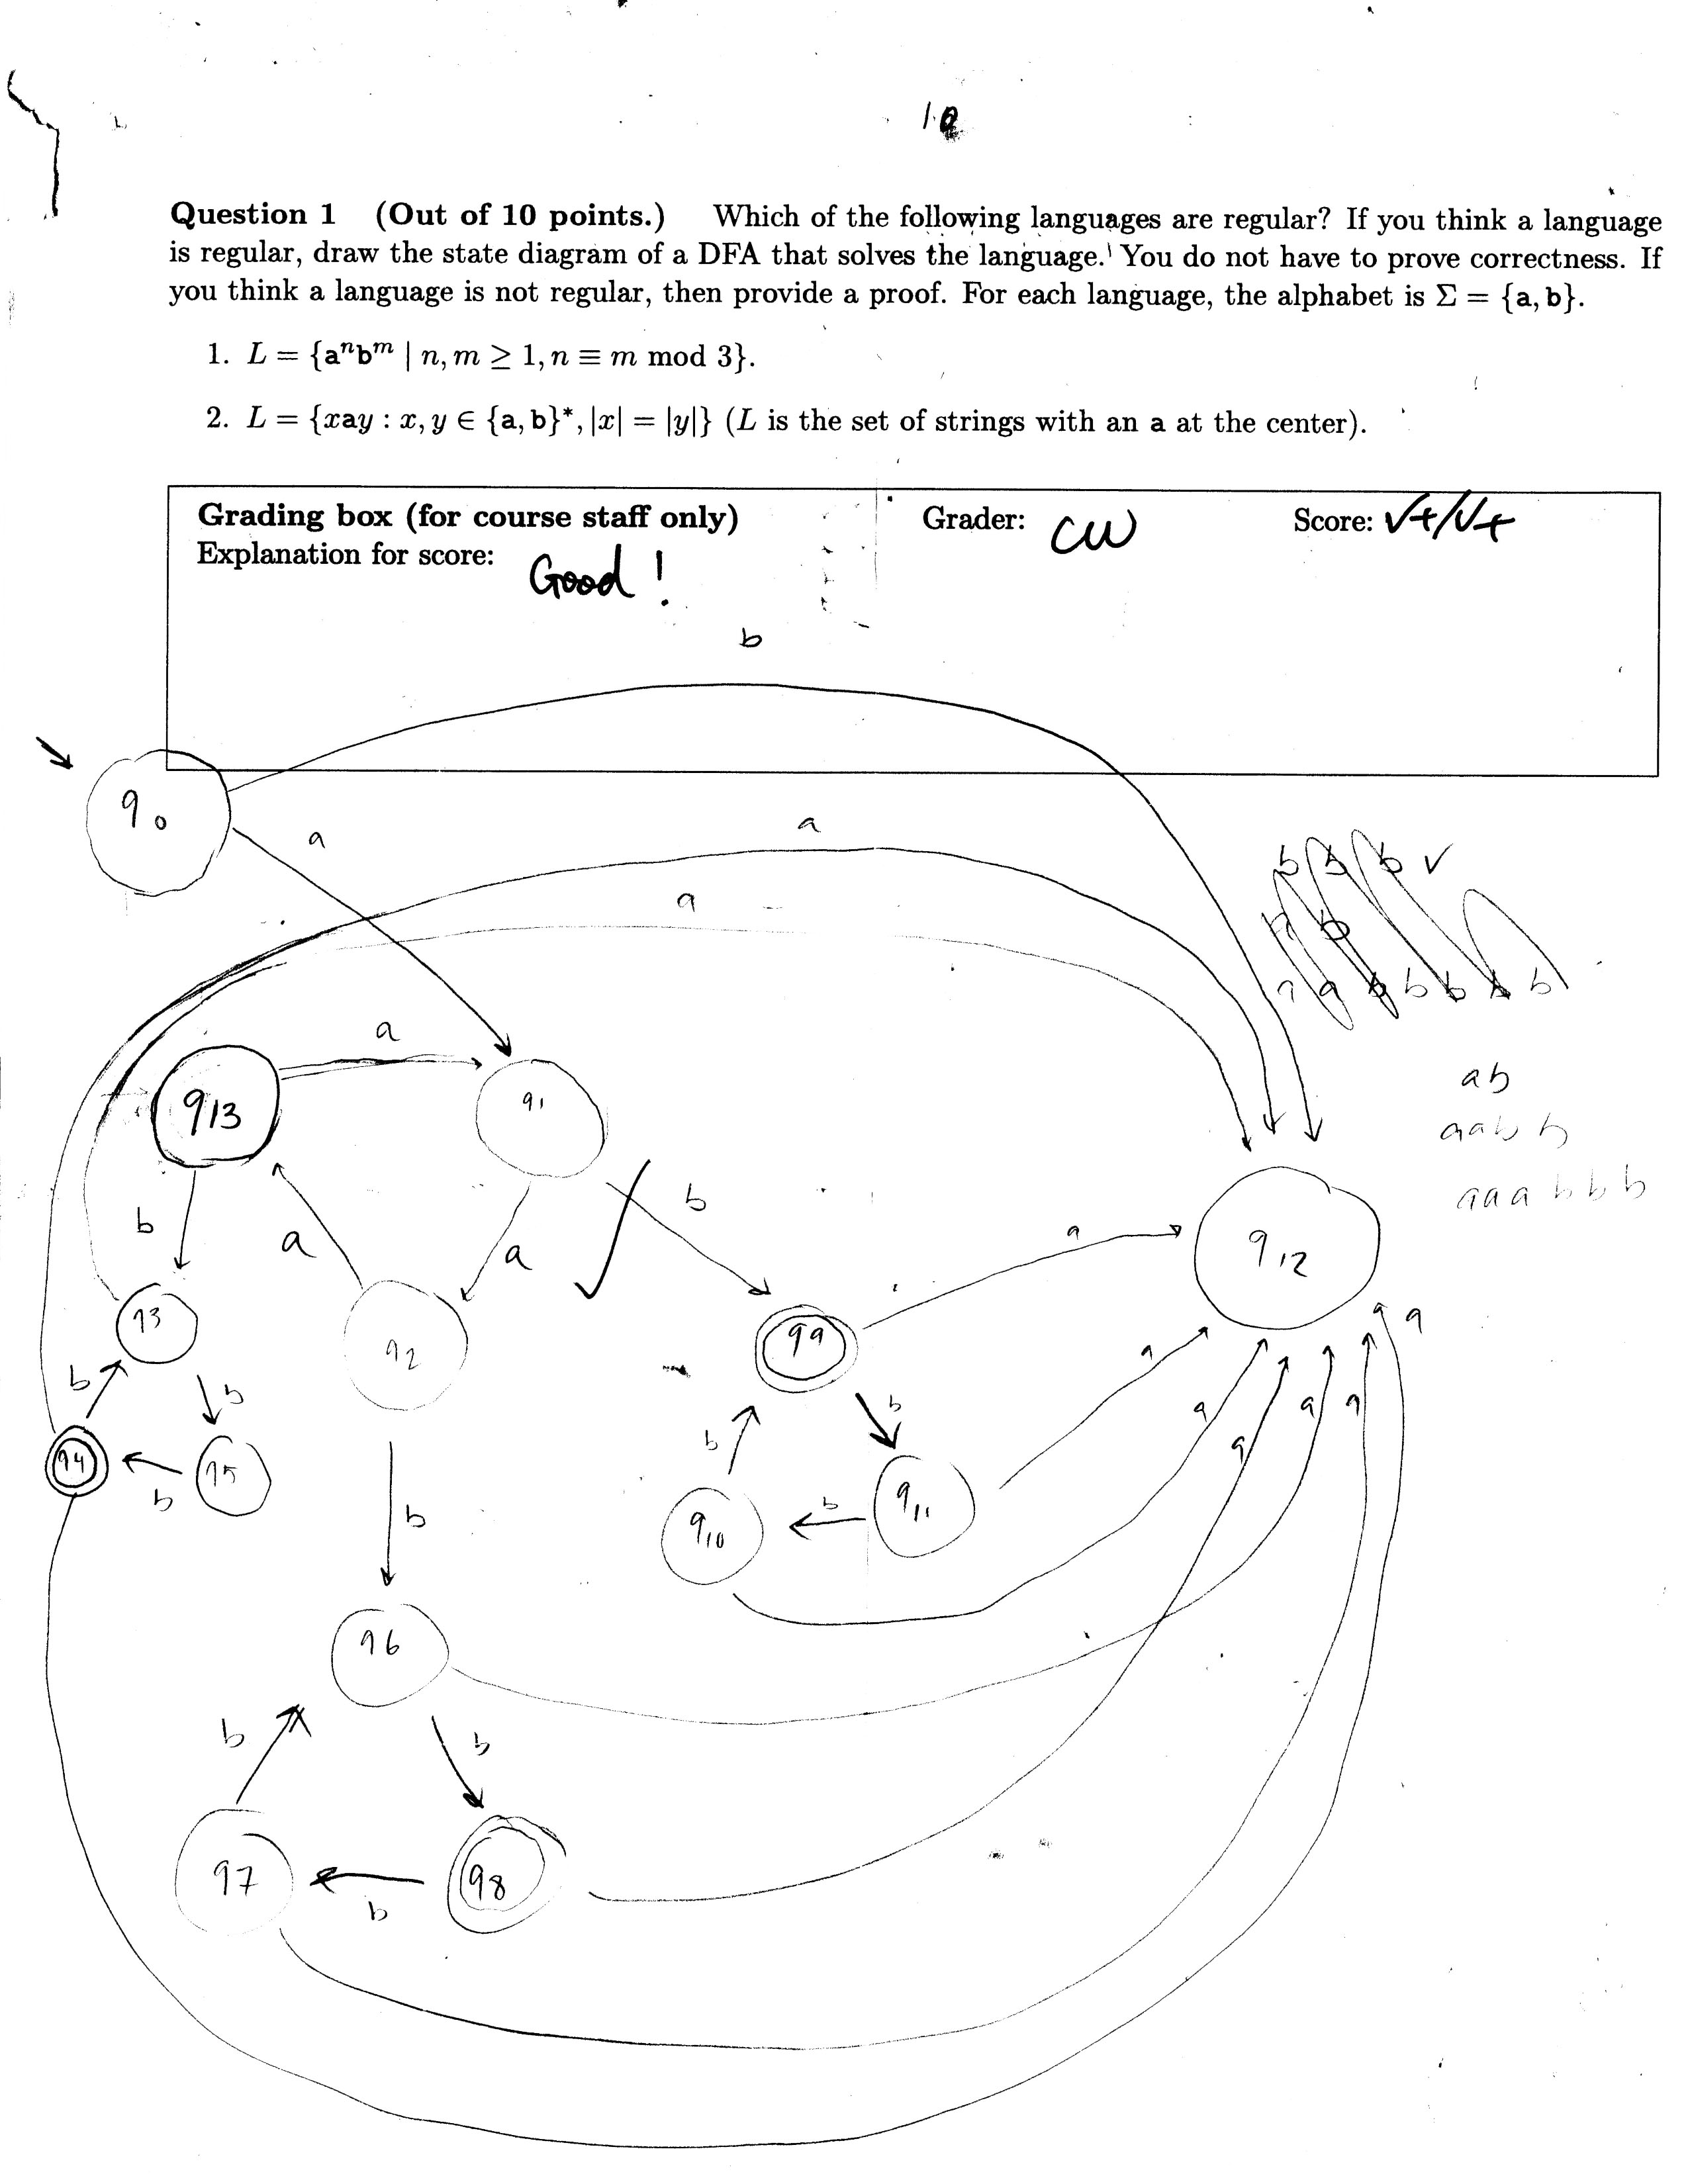 Question 1 (Out of 10 points.) Which of the following languages are regular? If you think a language
is regular, draw the state diagram of a DFA that solves the language. You do not have to prove correctness. If
you think a language is not regular, then provide a proof. For each language, the alphabet is Σ = {a, b}.
1. L = {aⁿbᵐ | n, m ≥ 1, n ≡ m mod 3}.
2. L = {xay : x, y ∈ {a, b}*, |x| = |y|} (L is the set of strings with an a at the center).
Grading box (for course staff only) Grader: CW Score: √+/√+
Explanation for score:
Good!
b
q0
a
a
a
b b b ✓
a
q13
q1
ab
aabb
aaabbb
b
a
a
b
q3
q2
q9
a
q12
b
b
q4
b
q5
b
b
q10
b
q11
a
a
a
a
a
a
b
q6
b
b
q7
b
q8